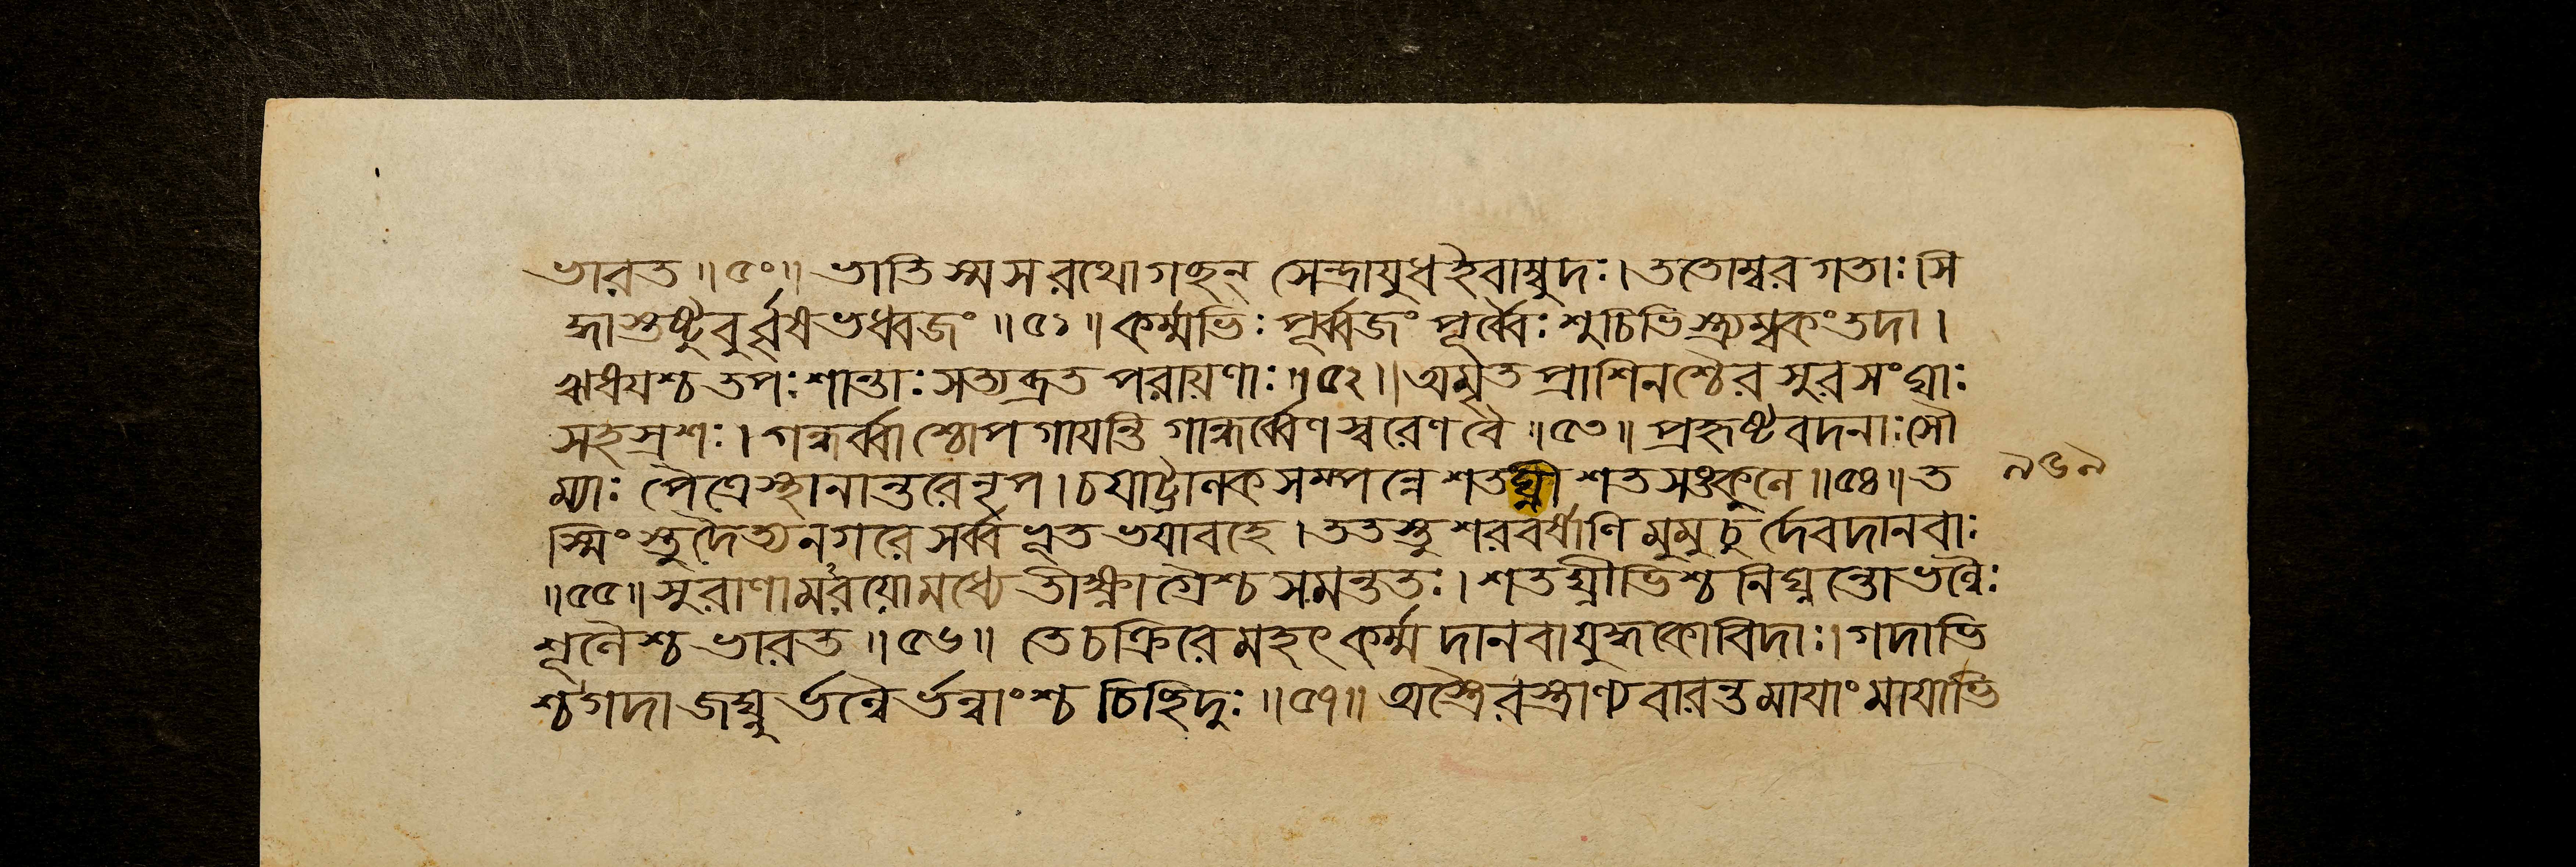 ভারত ॥৫০॥ ভাতিস্ম স রথো গছন্ সেন্দ্রাযুধ ইবাম্বুদঃ। ততোম্বর গতাঃ সি
দ্ধাস্তুষ্টুবুর্বৃষভধ্বজং ॥৫১॥ কর্ম্মভিঃ পূর্ব্বজং পূর্ব্বৈঃ শুচিভিস্ত্র্যম্বকং তদা।
ঋষযশ্চ তপঃ শান্তাঃ সত্যব্রত পরায়ণাঃ ॥৫২॥ অমৃত প্রাশিনশ্চৈব সুরসংঘাঃ
সহস্রশঃ। গন্ধর্ব্বাশ্চোপগাযন্তি গান্ধর্ব্বেণ স্বরেণ বৈ ॥৫৩॥ প্রহৃষ্টবদনাঃ সৌ
ম্যাঃ পৈত্রেস্থানান্তরে নৃপ। চযাট্টানক সম্পন্নে শতঘ্নী শত সঙ্কুলে ॥৫৪॥ ত ১৬১
স্মিংস্তু দৈত্যনগরে সর্ব্বভূত ভযাবহে। ততস্তু শরবর্ষাণি মুমুচুর্দেবদানবাঃ
॥৫৫॥ সুরাণামরযো মধ্যে তীক্ষ্ণাগ্রৈশ্চ সমন্ততঃ। শতঘ্নীভিশ্চ নিঘ্নন্তো ভল্লৈঃ
শূলৈশ্চ ভারত ॥৫৬॥ তে চক্রিরে মহৎ কর্ম্ম দানবা যুদ্ধকোবিদাঃ। গদাভি
শ্চ গদা জঘ্নুর্ভল্লৈর্ভল্লাংশ্চ চিছিদুঃ ॥৫৭॥ অস্ত্রৈরস্ত্রাণ্যবারন্ত মাযাং মাযাভি